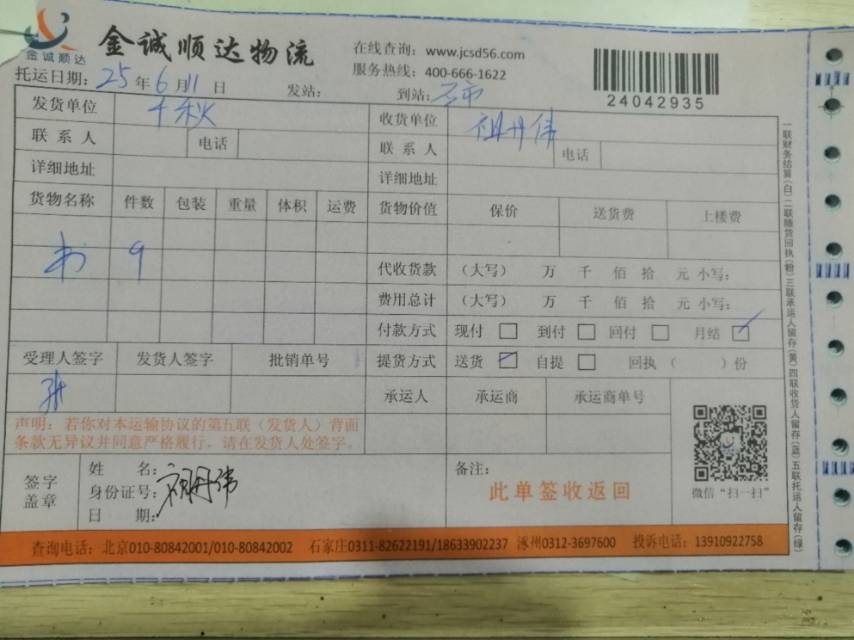 金诚顺达
金诚顺达物流
在线查询：www.jcsd56.com
服务热线：400-666-1622
24042935
托运日期：25年6月11日 发站： 到站：
发货单位 千秋 收货单位 祖丹伟
联系人 电话 联系人 电话
详细地址 详细地址
货物名称 件数 包装 重量 体积 运费 货物价值 保价 送货费 上楼费
书 9
代收货款 （大写） 万 千 佰 拾 元 小写：
费用总计 （大写） 万 千 佰 拾 元 小写：
付款方式 现付 到付 回付 月结
受理人签字 发货人签字 批销单号 提货方式 送货 自提 回执（ ）份
张 承运人 承运商 承运商单号
声明：若你对本运输协议的第五联（发货人）背面
条款无异议并同意严格履行，请在发货人处签字。
签字
盖章
姓 名：
身份证号：祖丹伟
日 期：
备注：
此单签收返回
微信“扫一扫”
查询电话：北京010-80842001/010-80842002 石家庄0311-82622191/18633902237 涿州0312-3697600 投诉电话：13910922758
一联财务结算（白）二联随货回执（粉）三联承运人留存（黄）四联收货人留存（蓝）五联托运人留存（绿）